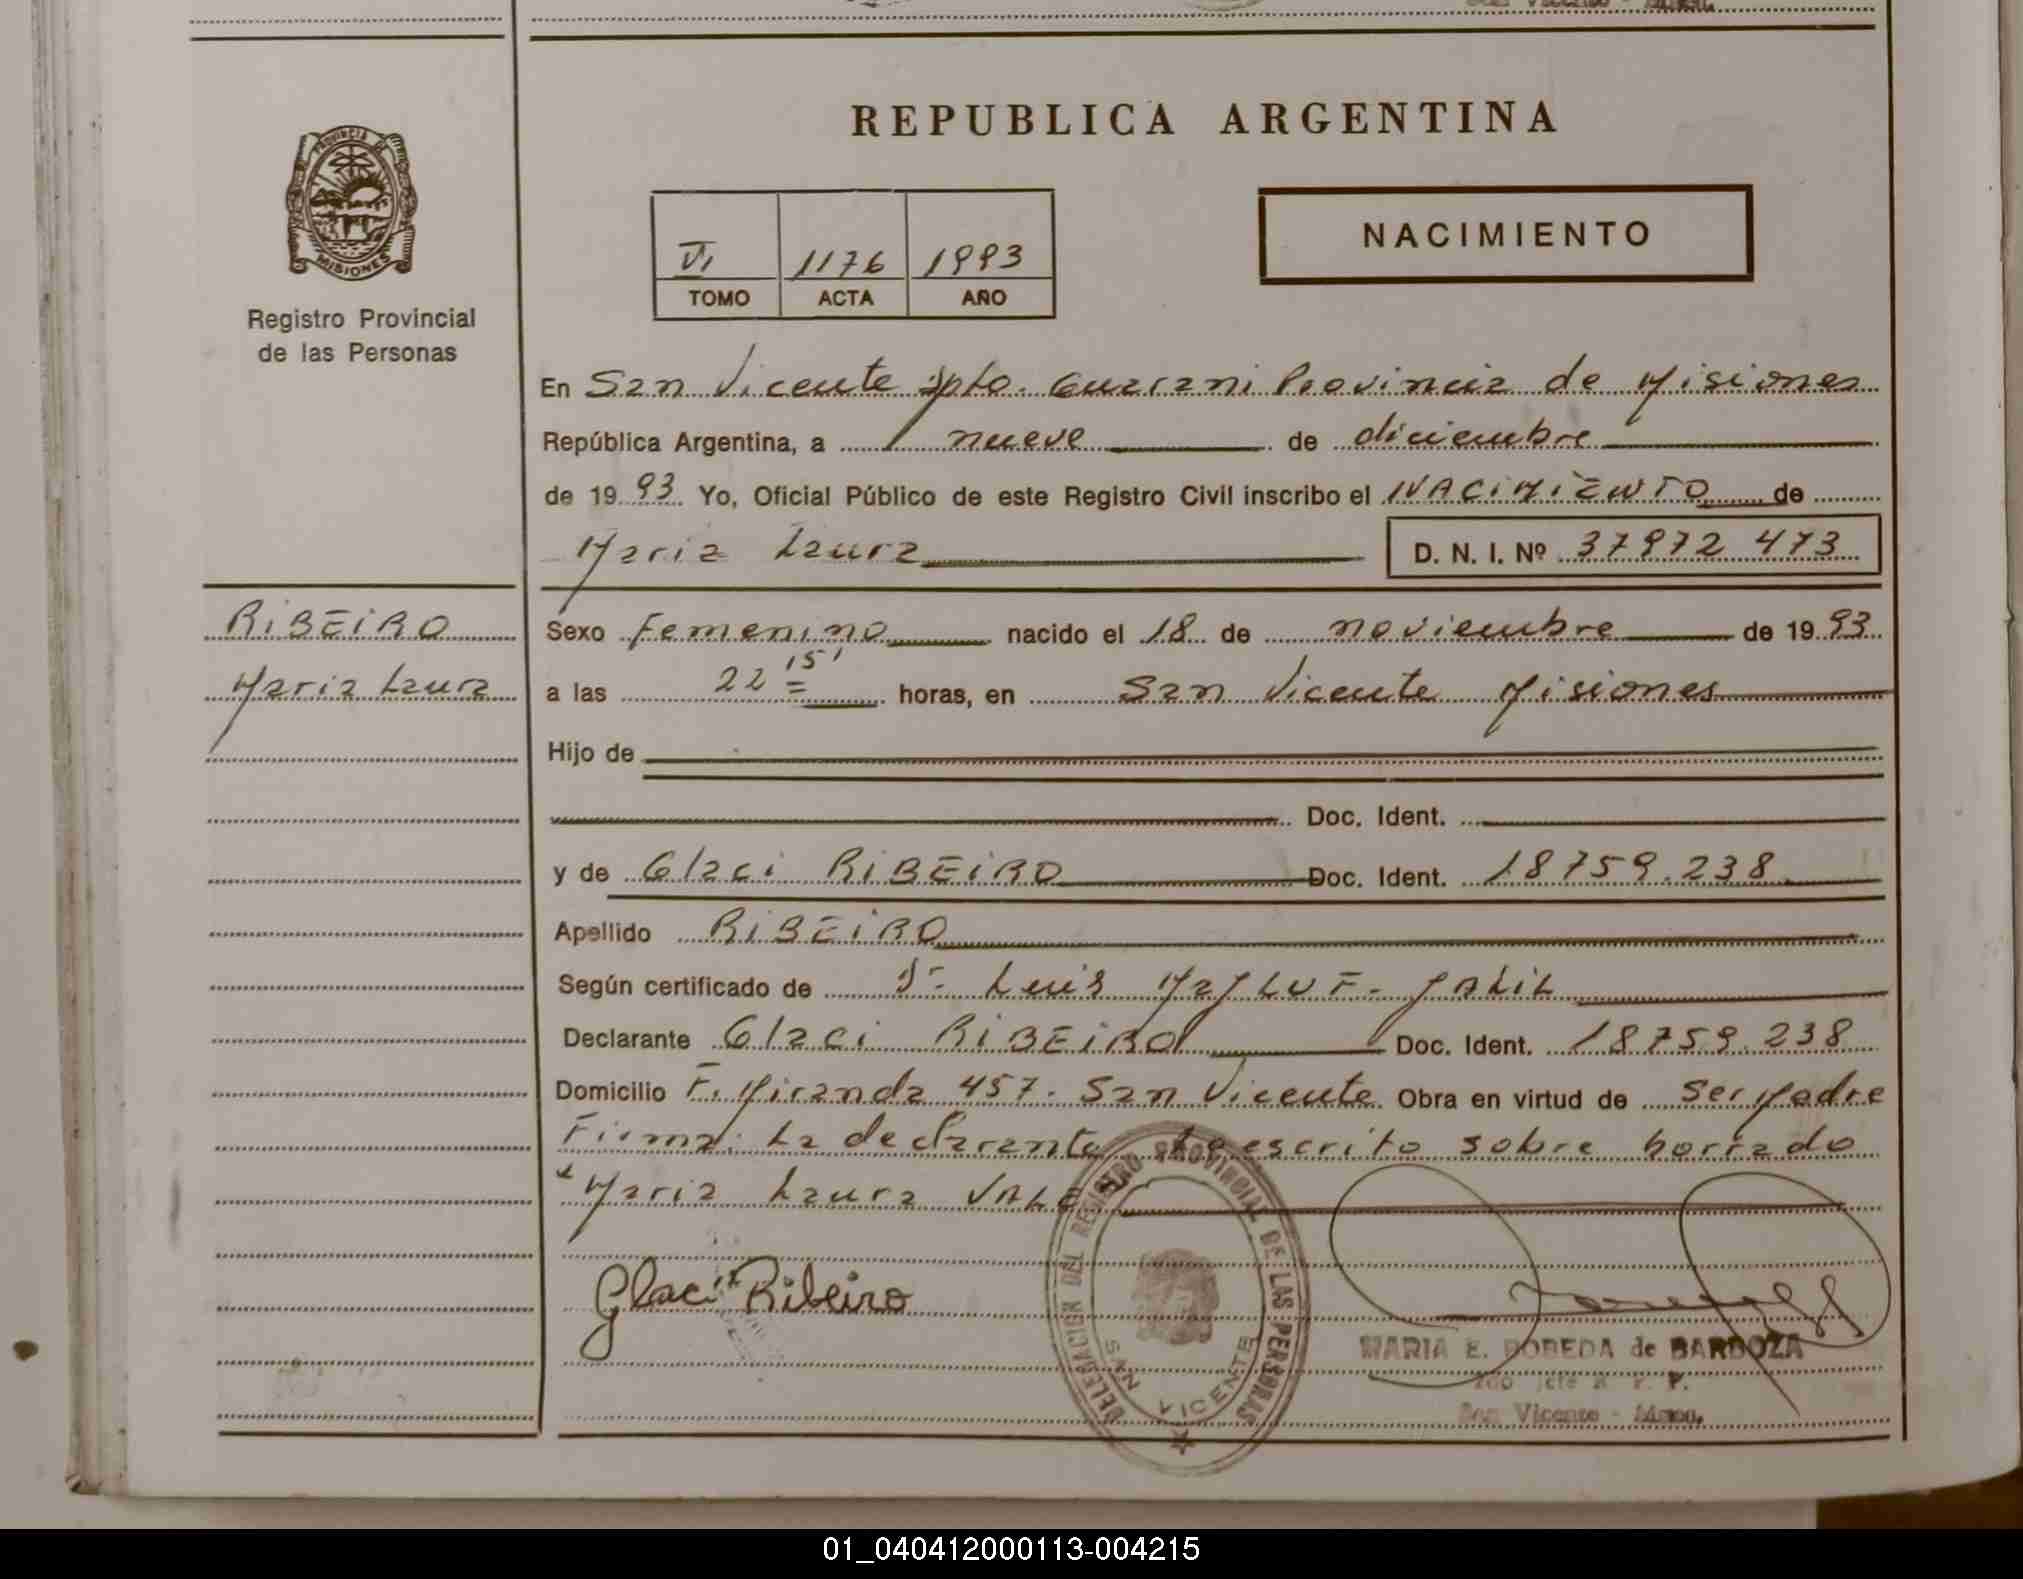 REPUBLICA ARGENTINA
PROVINCIA DE MISIONES
Registro Provincial
de las Personas
VI 1176 1993
TOMO ACTA AÑO
NACIMIENTO
En San Vicente Dpto. Guarani Provincia de Misiones
República Argentina, a nueve de diciembre
de 1993 Yo, Oficial Público de este Registro Civil inscribo el NACIMIENTO de
Maria Laura D. N. I. Nº 37972 473
RIBEIRO
Maria Laura
Sexo Femenino nacido el 18 de noviembre de 1993
a las 22 15' horas, en San Vicente Misiones
Hijo de
Doc. Ident.
y de Glaci RIBEIRO Doc. Ident. 18759.238
Apellido RIBEIRO
Según certificado de Dr. Luis MAJLUF. JALIL
Declarante Glaci RIBEIRO Doc. Ident. 18759.238
Domicilio F. Miranda 457. San Vicente Obra en virtud de ser Madre
Firma: La declarante escrito sobre borrado
"Maria Laura VALE
Glaci Ribeiro
DELEGACION DEL REGISTRO PROVINCIAL DE LAS PERSONAS
SAN VICENTE
MARIA E. POREDA de BARBOZA
2do Jefe R. P. P.
San Vicente - Mnes.
01_040412000113-004215